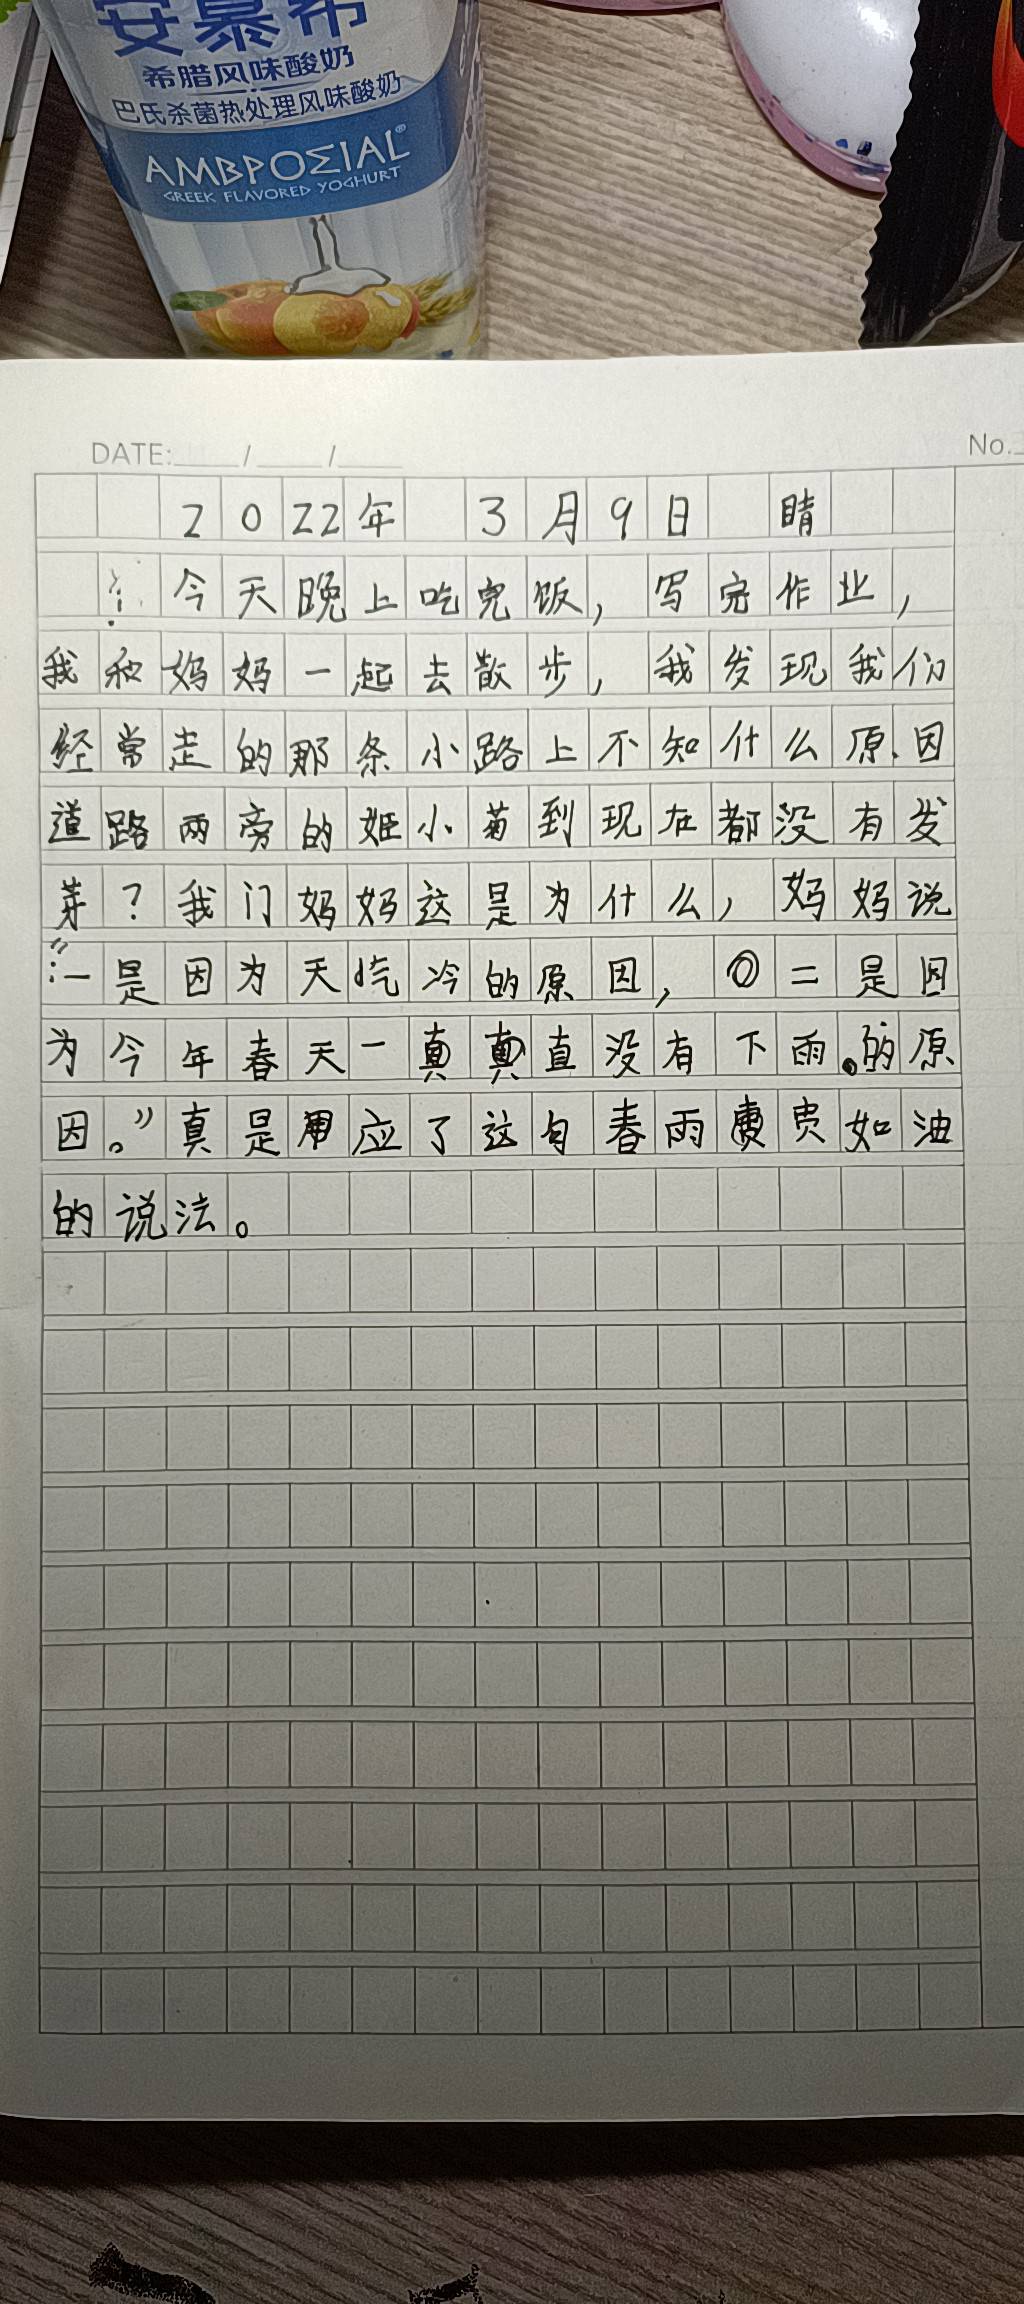 安慕希
希腊风味酸奶
巴氏杀菌热处理风味酸奶
AMBPOΣIAL®
GREEK FLAVORED YOGHURT
DATE: / /
No.
2022年 3月9日 晴
今天晚上吃完饭，写完作业，
我和妈妈一起去散步，我发现我们
经常走的那条小路上不知什么原、因
道路两旁的姬小菊到现在都没有发
芽？我门妈妈这是为什么，妈妈说
:“一是因为天气冷的原因，二是因
为今年春天一直没有下雨。的原
因。”真是应了这句春雨贵如油
的说法。